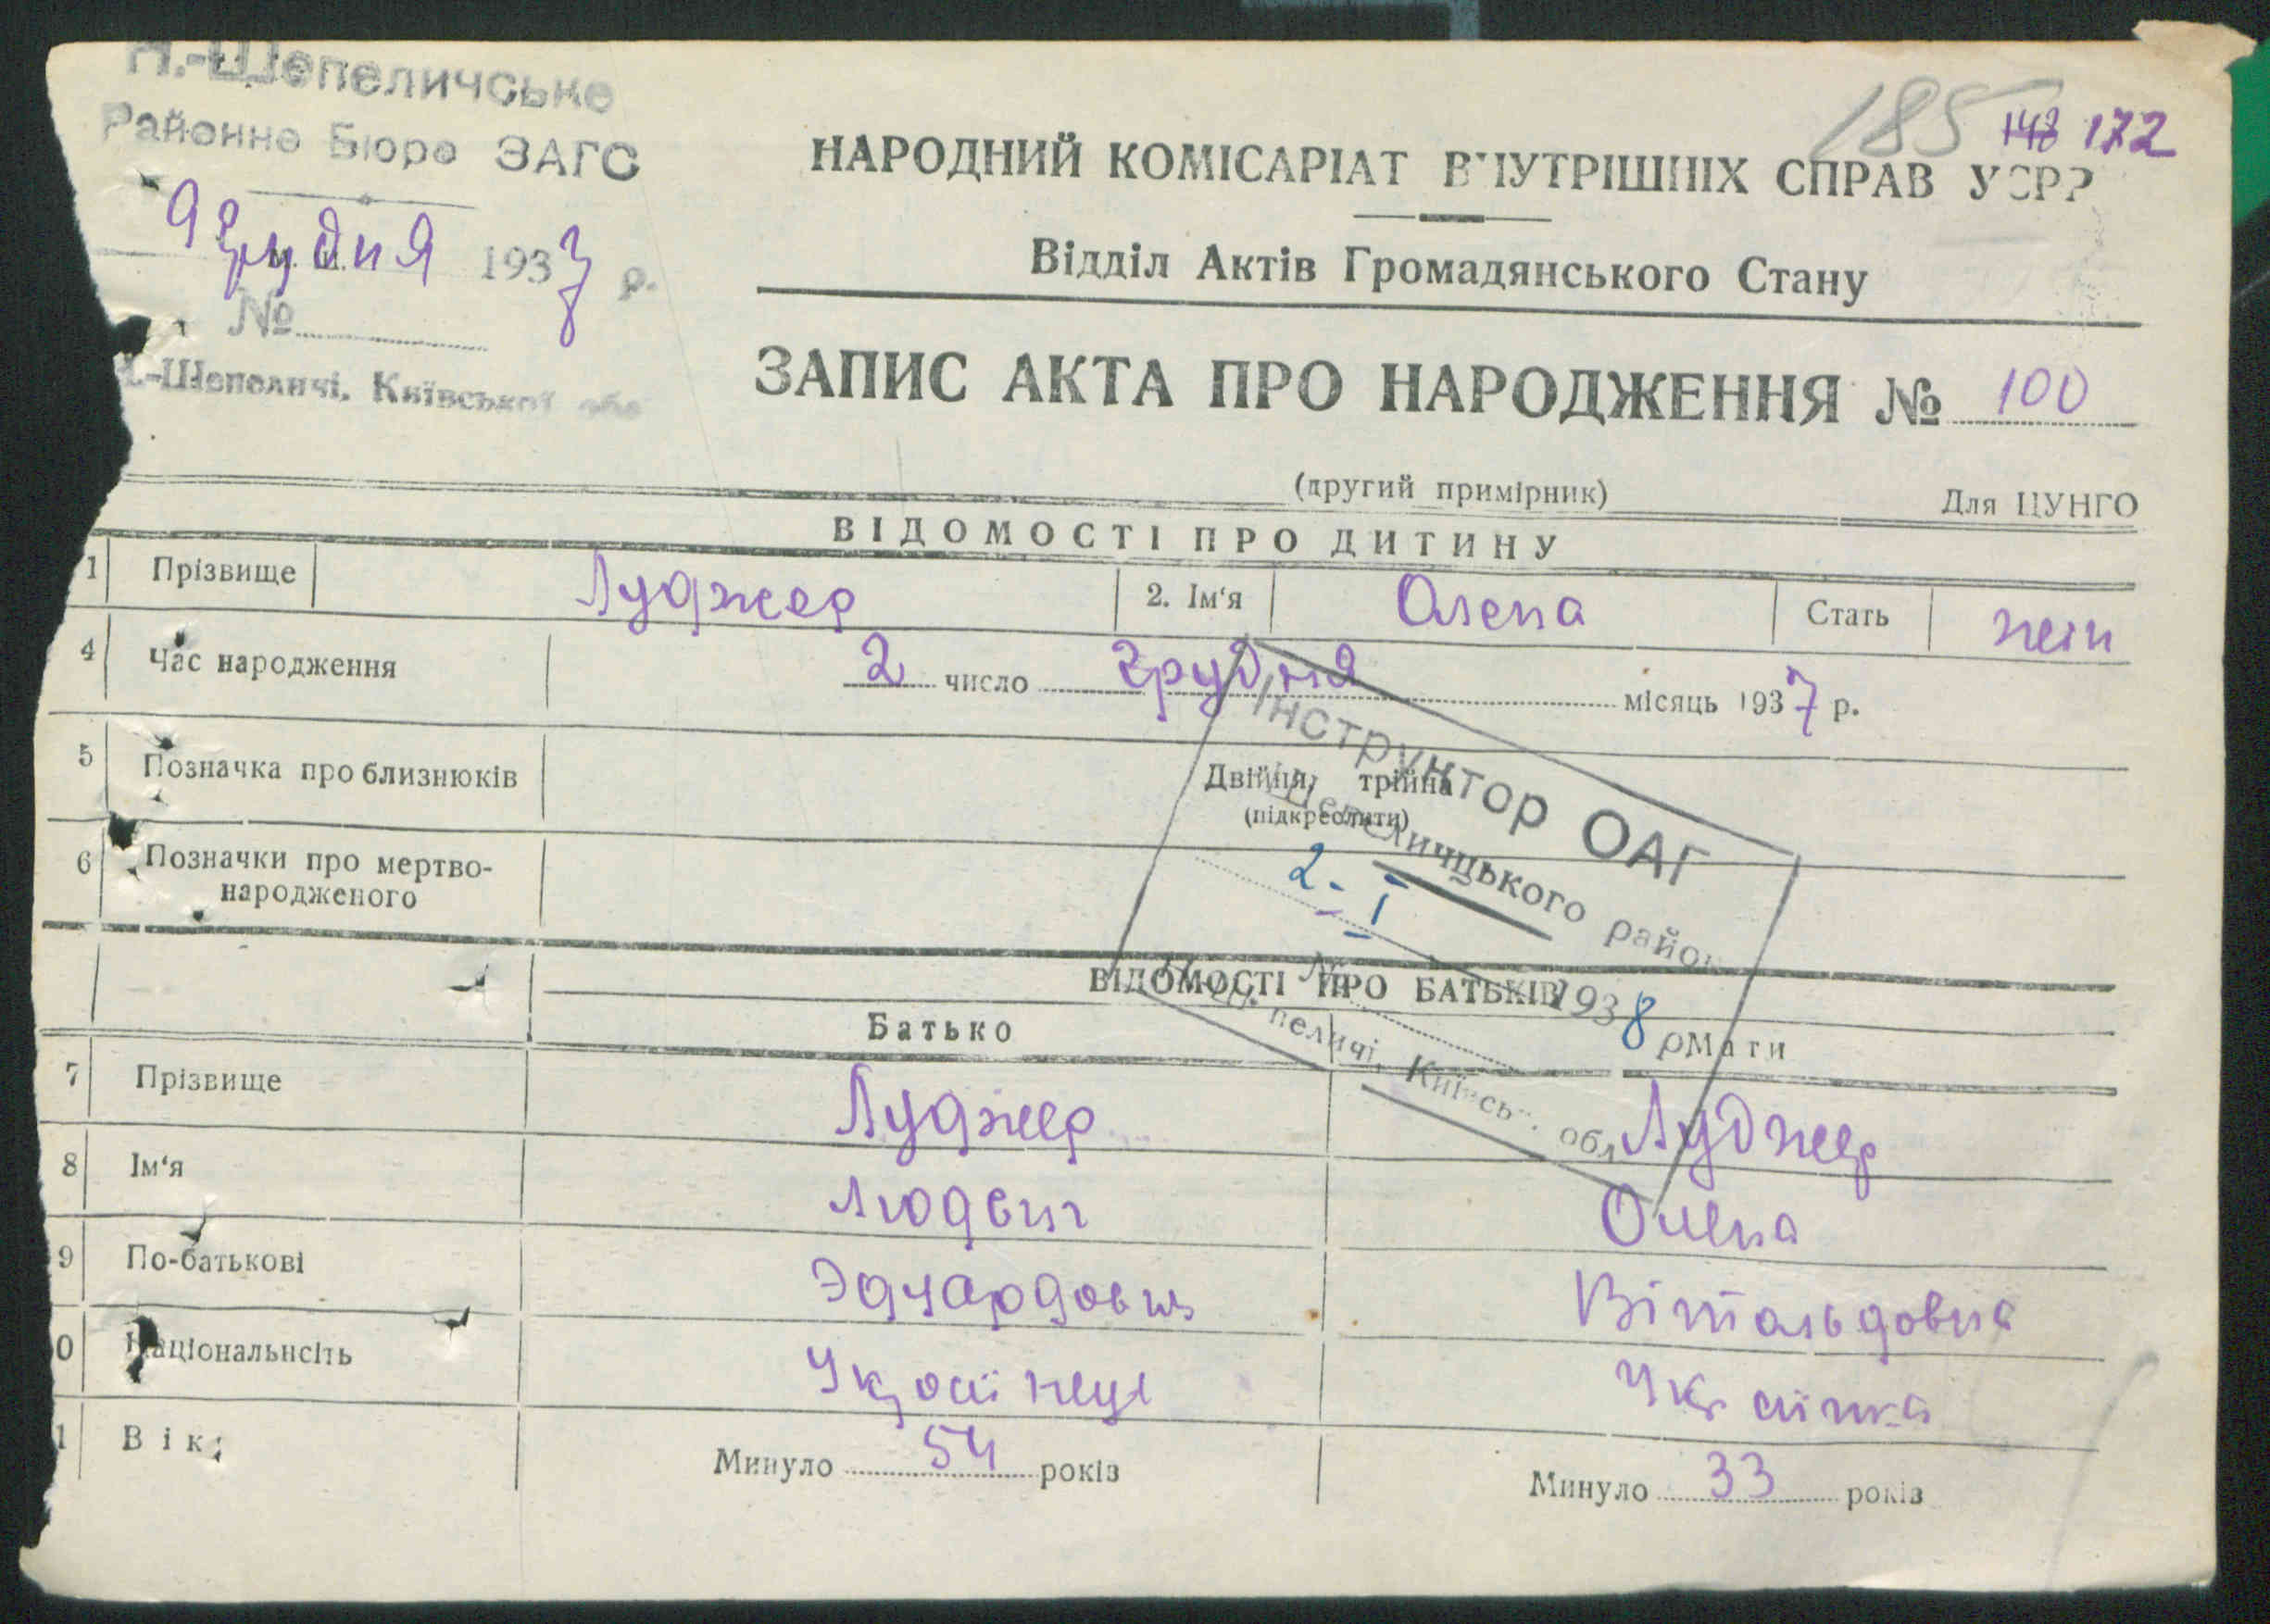 Н.-Шепеличське
Районне Бюро ЗАГС
9 грудня 1937 р.
№
Н.-Шепеличі, Київської обл
185 148 172
НАРОДНИЙ КОМІСАРІАТ ВНУТРІШНІХ СПРАВ УСРР
Відділ Актів Громадянського Стану
ЗАПИС АКТА ПРО НАРОДЖЕННЯ № 100
(другий примірник)
Для ЦУНГО
ВІДОМОСТІ ПРО ДИТИНУ
1 Прізвище Луджер 2. Ім'я Олена Стать жін
4 Час народження 2 число грудня місяць 1937 р.
5 Позначка про близнюків Двійня, трійна
(підкреслити)
6 Позначки про мертво-
народженого
Інструктор ОАГ
Шепеличцького район
2-I
№ 1938 р
Шепеличі, Київськ. обл
ВІДОМОСТІ ПРО БАТЬКІВ
Батько Мати
7 Прізвище Луджер Луджер
8 Ім'я Людвиг Олена
9 По-батькові Эдуардович Вітальдовна
0 Національнсіть Українец Українка
1 Вік: Минуло 54 років Минуло 33 років